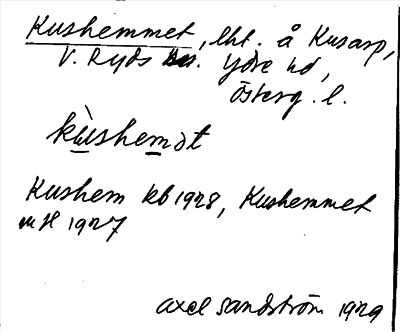 Kushemmet, lht. å Kusarp,
V. Ryds sn. Ydre hd,
Österg. l.
kùshemət
Kushem kb 1928, Kushemmet
mH 1927
Axel Sandström 1929